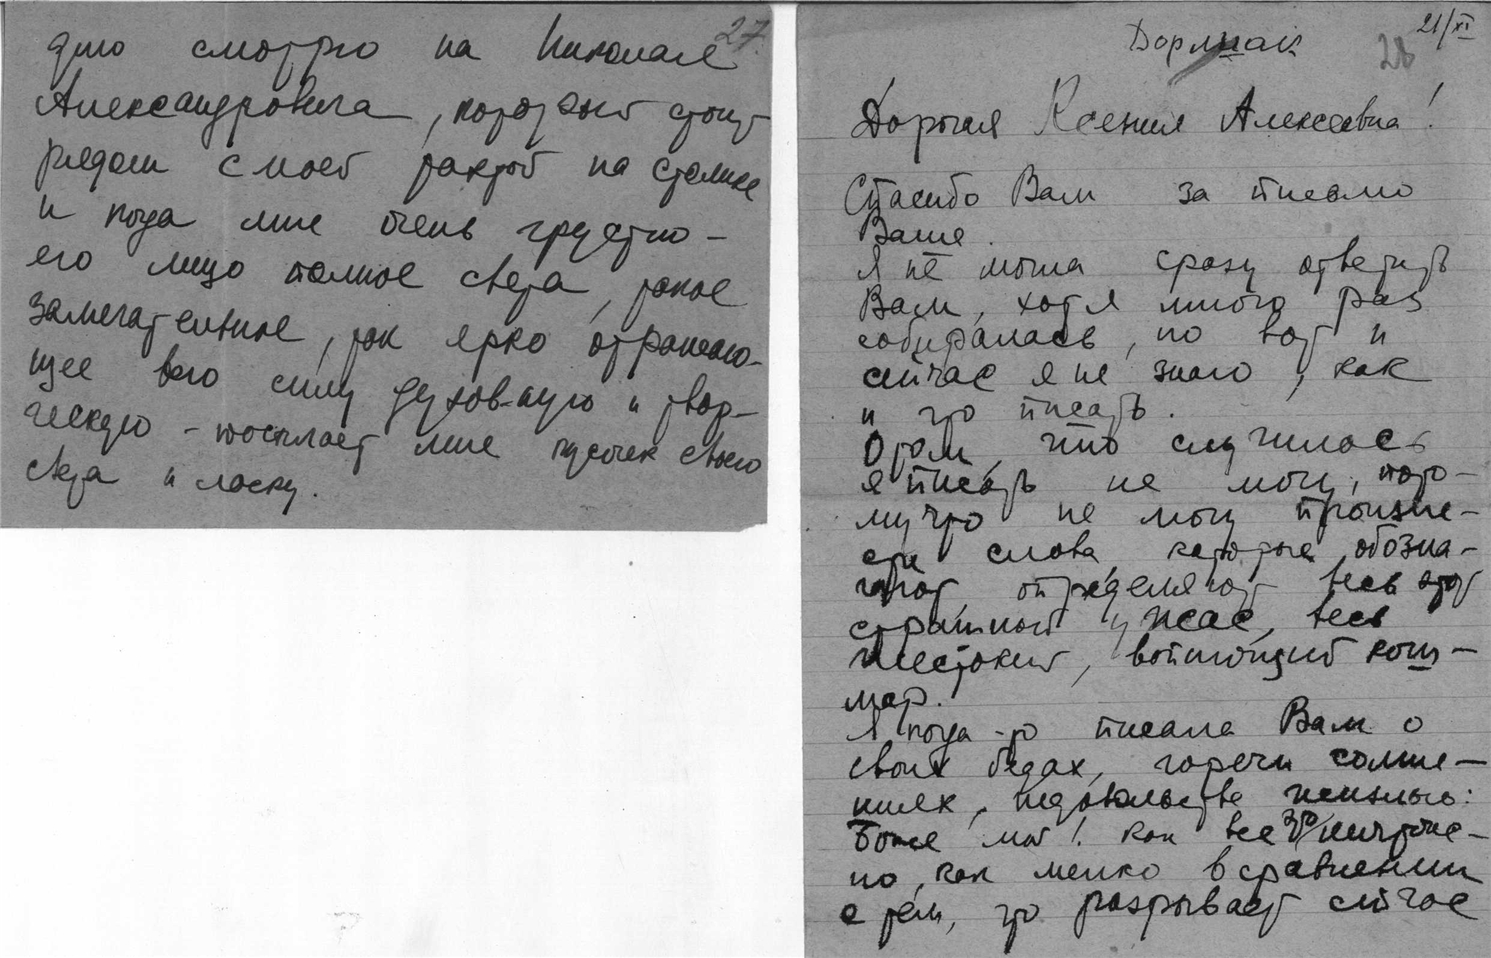 27.
дню смотрю на Николая
Александровича, который стоит
рядом с моей тахтой на столике
и когда мне очень грустно –
его лицо полное света, такое
замечательное, так ярко отражаю-
щее всю силу духов-ную и твор-
ческую – посылает мне кусочек своего
света и ласку.
21/XI
Дорлиак
28
Дорогая Ксения Алексеевна!
Спасибо Вам за письмо
Ваше.
Я не могла сразу ответить
Вам, хотя много раз
собиралась, но вот и
сейчас я не знаю, как
и что писать.
О том, что случилось
я писать не могу, пото-
му что не могу произне-
сти слова, которые обозна-
чают определяют весь этот
страшный ужас, весь
жестокий, вопиющий кош-
мар.
Я когда-то писала Вам о
своих бедах, горечи сомне-
ниях, недовольстве жизнью:
Боже мой! как все это ничтож-
но, как мелко в сравнении
с тем, что разрывает сейчас